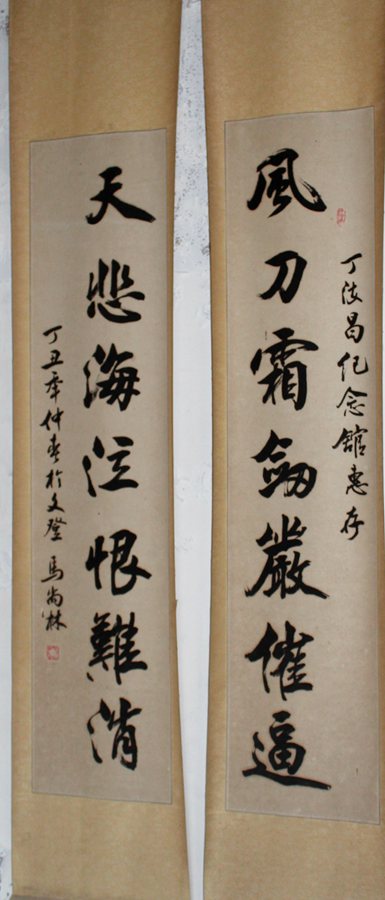 丁汝昌纪念館惠存
風刀霜劍嚴催逼
天悲海泣恨難消
丁丑年仲春於文登 馬尚林